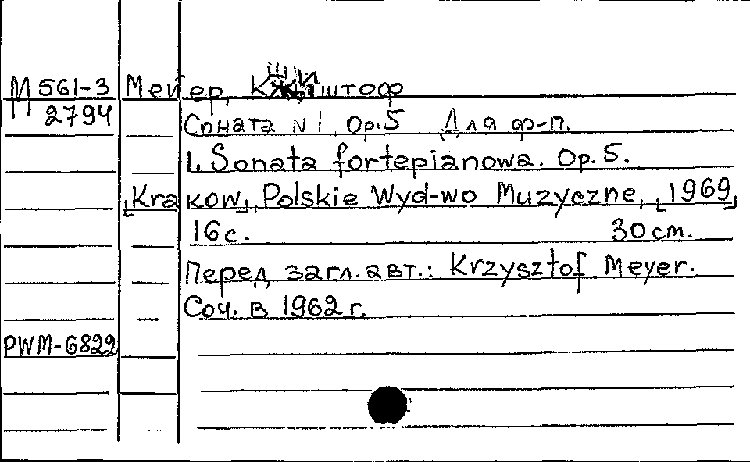 М 561-3 Мейер,
2794
Соната N 1, Op.5 Для ф-п.
1. Sonata fortepianowa. Op. 5.
[Krakow], Polskie Wyd-wo Muzyczne, [1969]
16 с. 30 см.
Перед загл. авт.: Krzysztof Meyer.
Соч. в 1962 г.
PWM-6822